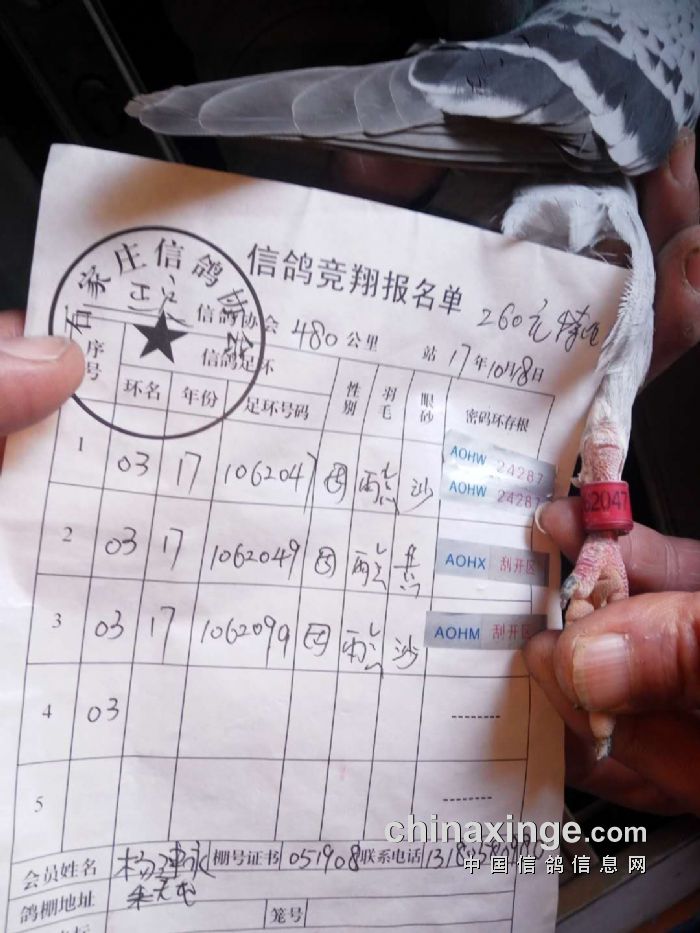 石家庄信鸽
信鸽竞翔报名单
信鸽协会 480 公里 站 17年10月8日 260元
序号 信鸽足环 性别 羽毛 眼砂 密码环存根
环名 年份 足环号码
1 03 17 1062047 沙 AOHW 24287
AOHW 24287
62047
2 03 17 1062049 黄 AOHX 刮开区
3 03 17 1062099 沙 AOHM 刮开区
4 03 --------
5 --------
会员姓名 棚号证书 051908 联系电话
鸽棚地址
笼号
chinaxinge.com
中国信鸽信息网